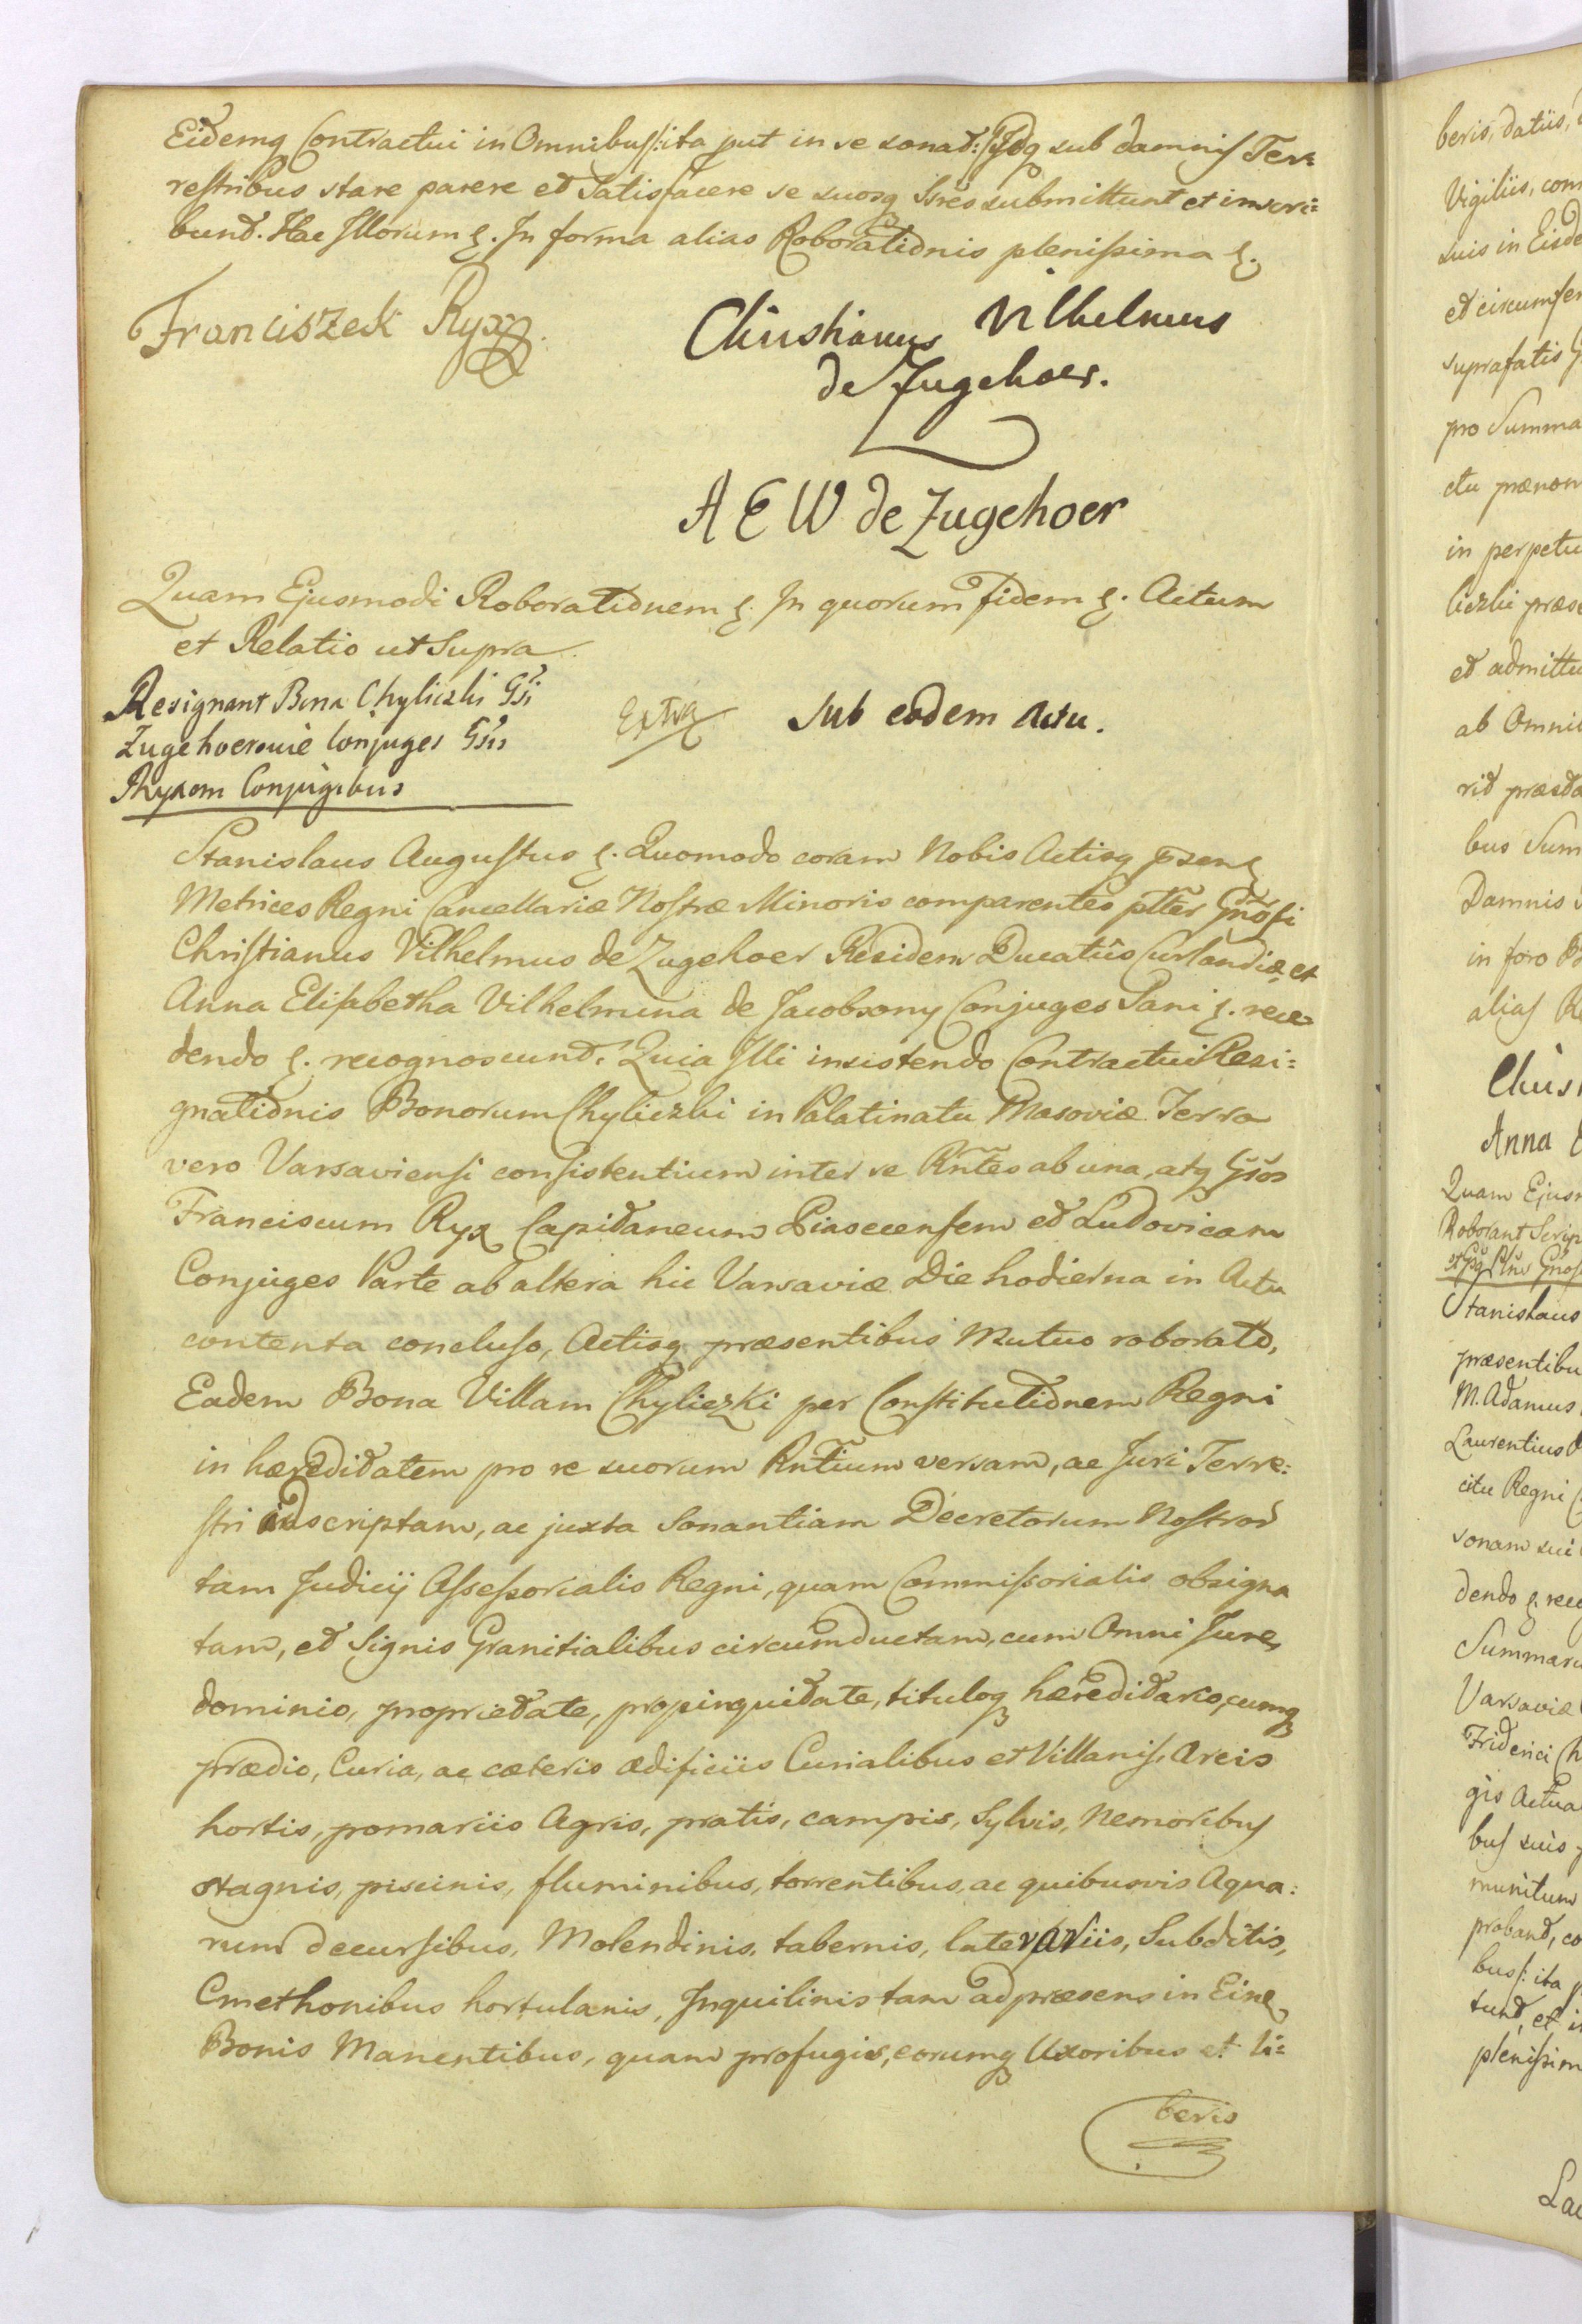 Eidemq Contractui in Omnibus /:ita put in se sonat:/ Idq sub damnis Ter=
restribus stare parere et Satisfacere se suosq Ssres submittunt et inscri=
bunt. Hac Illorum &. In forma alias Roborationis plenissima &.
Franciszek Ryx
Christianus Vilhelmus
de Zugehoer.
A E W de Zugehoer
Quam Ejusmodi Roborationem &. In quorum fidem &. Actum
et Relatio ut Supra.
Resignant Bona Chyliczki Gsi
Zugehoerowie Conjuges Gsis
Ryxom Conjugibus
Extra
Sub eodem Actu.
Stanislaus Augustus &. Quomodo coram Nobis Actisq psen&
Metrices Regni Cancellariæ Nostræ Minoris comparentes ptter Gnosi
Christianus Vilhelmus de Zugehoer Residens Ducatûs Curlandiæ et
Anna Elisabetha Vilhelmina de Jacobsony Conjuges Sani &. rece=
dendo &. recognoscunt. Quia Illi insistendo Contractui Resi=
gnationis Bonorum Chyliczki in Palatinatu Masoviæ Terra
vero Varsaviensi consistentium inter se Rntes ab una, atq Gsos
Franciscum Ryx Capitaneum Piasecensem et Ludovicam
Conjuges Parte ab altera hic Varsaviæ Die hodierna in Actu
contenta concluso, Actisq præsentibus Mutuo roborato,
Eadem Bona Villam Chyliczki per Constitutionem Regni
in hæreditatem pro se suorum Rntium versam, ac Juri Terre=
stri adscriptam, ac juxta Sonantiam Decretorum Nostror
tam Judicij Assessorialis Regni, quam Commissorialis obsigna
tam, et Signis Granitialibus circumductam, cum Omni Jure,
dominio, proprietate, propinquitate, tituloq hæreditario, cumq
prædio, Curia, ac cæteris ædificiis Curialibus et Villanis, Areis
hortis, pomariis Agris, pratis, campis, Sylvis, Nemoribus
stagnis, piscinis, fluminibus, torrentibus, ac quibusvis Aqua=
rum decursibus, Molendinis, tabernis, laterariis, Subditis,
Cmethonibus hortulanis, Inquilinis tam ad præsens in Eisd
Bonis Manentibus, quam profugis, eorumq Uxoribus et li=
beris
beris, datiis,
Vigiliis, com
suis in Eisde
et circumfer
suprafatis G
pro Summa
ctu prænom
in perpetu
liczki præs
et admittu
ab Omni
rit præsta
bus Sum
Damnis
in foro
alias R
Chris
Anna E
Quam Ejusm
Roborant Scrip
Stanislaus
præsentibu
M. Adamus
Laurentius
citu Regni
sonam sui
dendo &. rec
Summar
Varsaviæ
Friderici Ch
gis Actua
bus suis
munitum
proband, co
bus /: ita
tunt, et i
plenissim